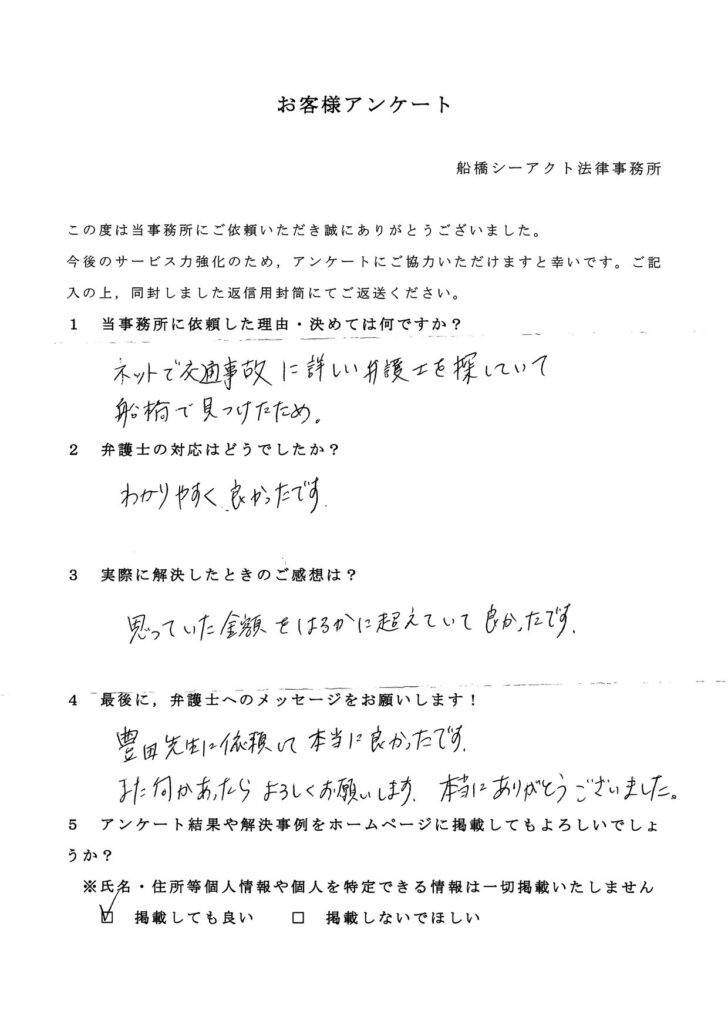 お客様アンケート
船橋シーアクト法律事務所
この度は当事務所にご依頼いただき誠にありがとうございました。
今後のサービス力強化のため，アンケートにご協力いただけますと幸いです。ご記
入の上，同封しました返信用封筒にてご返送ください。
１　当事務所に依頼した理由・決めては何ですか？
ネットで交通事故に詳しい弁護士を探していて
船橋で見つけたため。
２　弁護士の対応はどうでしたか？
わかりやすく良かったです
３　実際に解決したときのご感想は？
思っていた金額をはるかに超えていて良かったです、
４　最後に，弁護士へのメッセージをお願いします！
豊田先生に依頼して本当に良かったです、
また何かあったらよろしくお願いします、本当にありがとうございました。
５　アンケート結果や解決事例をホームページに掲載してもよろしいでしょ
うか？
※氏名・住所等個人情報や個人を特定できる情報は一切掲載いたしません
☑　掲載しても良い　　□　掲載しないでほしい